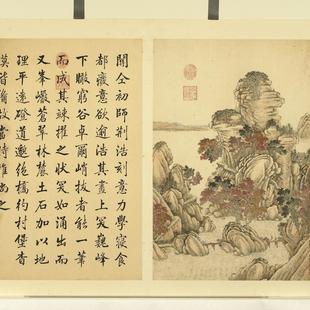 關仝初師荊浩刻意力學寢食
都廢意欲逾浩其畫上突巍峰
下瞰窮谷卓爾峭拔者能一筆
而成其竦擢之狀突如涌出而
又峯巖蒼翠林麓土石加以地
理平遠磴道邈絕橋彴村堡杳
漠皆備故當時推尚之